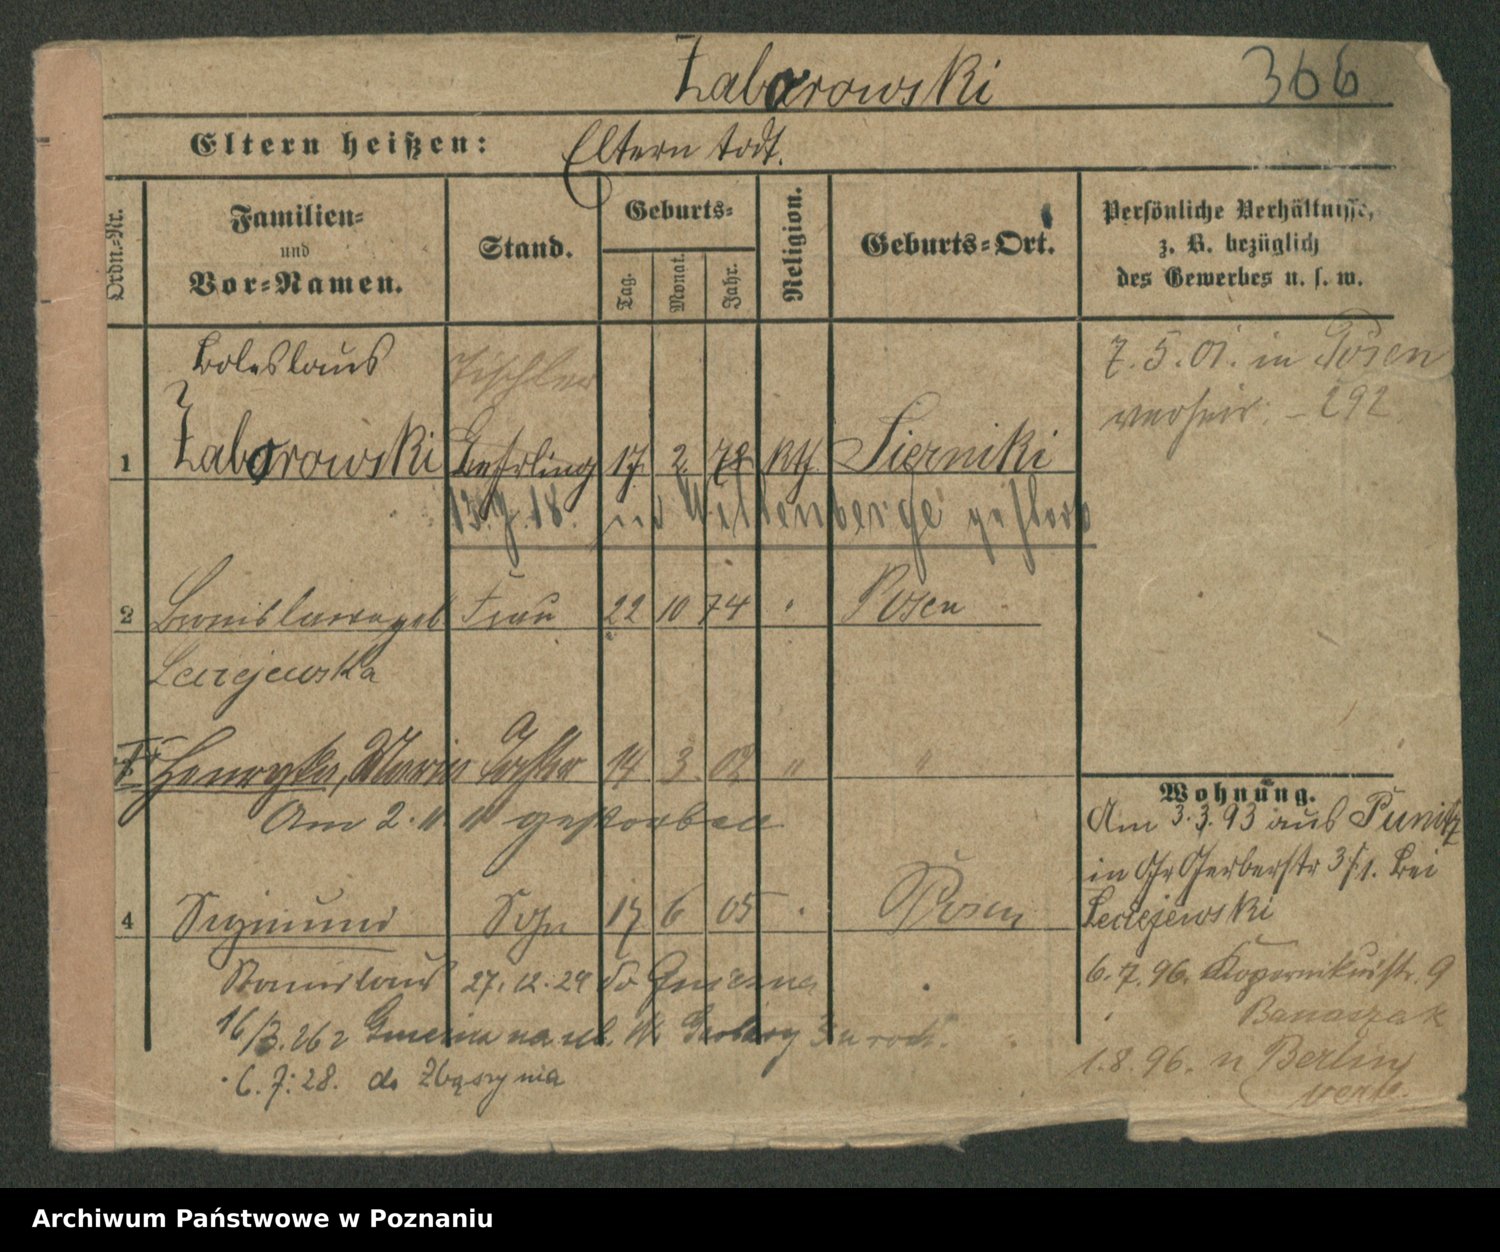 Zaborowski 366
Eltern heißen: Eltern todt.
Ordn.-Nr.
Familien-
und
Vor-Namen.
Stand.
Geburts-
Tag.
Monat.
Jahr.
Religion.
Geburts-Ort.
Persönliche Verhältnisse,
z. B. bezüglich
des Gewerbes u. s. w.
Boleslaus Tischler
1 Zaborowski Lehrling 17 2 78 kth Sierniki
13. 9. 18. in Wittenberge gestorb
7. 5. 01. in Posen
verheir. - 292
2 Bronislawa geb Frau 22 10 74 " Posen
Leciejewska
Henryka, Maria Tochter 14 3. 02 " "
Am 2. 11 11 gestorben
4 Sigmund Sohn 17 6 05 " Posen
Stanislaus 27. 12. 24 do Gniezna
16/3. 26 z Gniezna na
6. 7. 28. do Zbąszynia
Wohnung.
Am 3. 3. 93 aus Punitz
in Gr Gerberstr 3/1. bei
Leciejewski
6. 7. 96. Kopernikusstr. 9
Banaszak
1. 8. 96. n Berlin
verz.
Archiwum Państwowe w Poznaniu